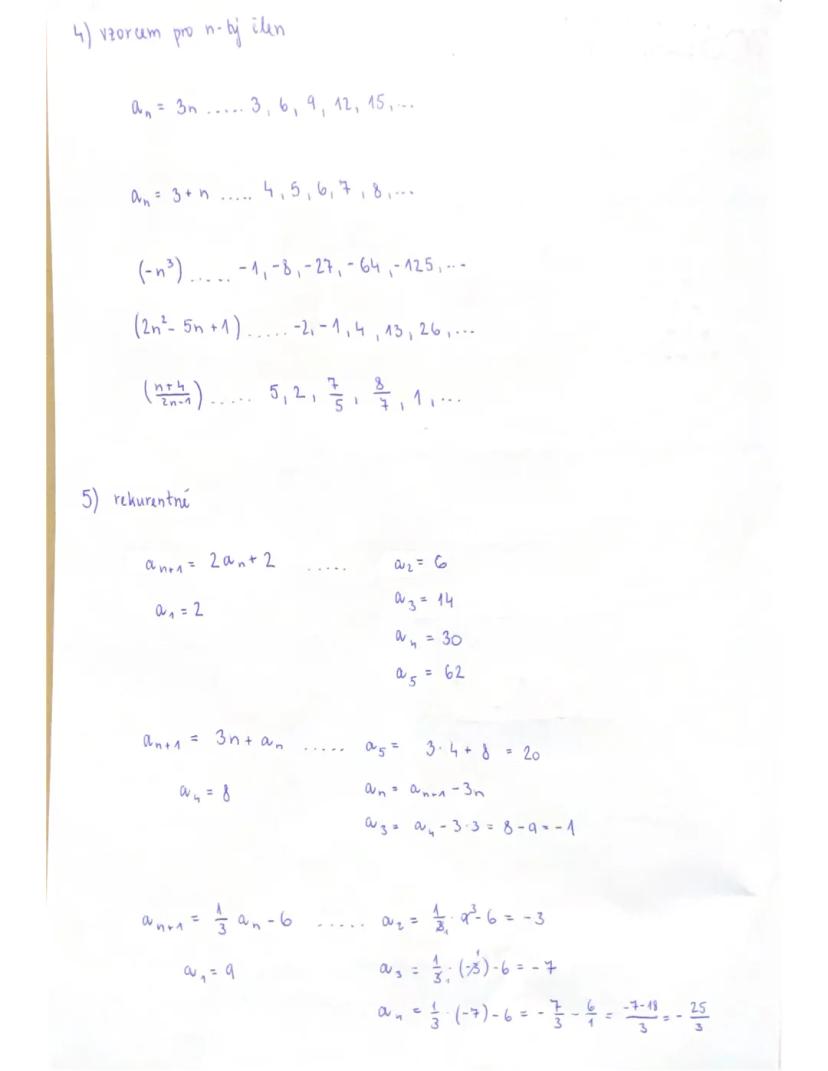 4) vzorcem pro n-tý člen
aₙ = 3n ..... 3, 6, 9, 12, 15, ...
aₙ = 3 + n ..... 4, 5, 6, 7, 8, ...
(-n³) ..... -1, -8, -27, -64, -125, ...
(2n² - 5n + 1) ..... -2, -1, 4, 13, 26, ...
((n+4)/(2n-1)) ..... 5, 2, 7/5, 8/7, 1, ...
5) rekurentně
aₙ₊₁ = 2aₙ + 2 ..... a₂ = 6
a₁ = 2 a₃ = 14
a₄ = 30
a₅ = 62
aₙ₊₁ = 3n + aₙ ..... a₅ = 3·4 + 8 = 20
a₄ = 8 aₙ = aₙ₊₁ - 3n
a₃ = a₄ - 3·3 = 8 - 9 = -1
aₙ₊₁ = 1/3 aₙ - 6 ..... a₂ = 1/3₁ · 9³ - 6 = -3
a₁ = 9 a₃ = 1/3₁ · (-3¹) - 6 = -7
a₄ = 1/3 · (-7) - 6 = - 7/3 - 6/1 = (-7-18)/3 = - 25/3